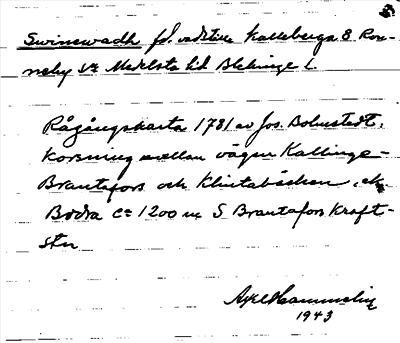 Swinewadh fd. vadställe Kalleberga 8 Ron-
neby sn Medelsta hd Blekinge l.
Rågångskarta 1781 av Jos. Bolmstedt.
Korsning mellan vägen Kallinge-
Brantafors och Klintabäcken, ek.
Bodra ca 1200 m S Brantafors kraft-
stn
Axel
1943